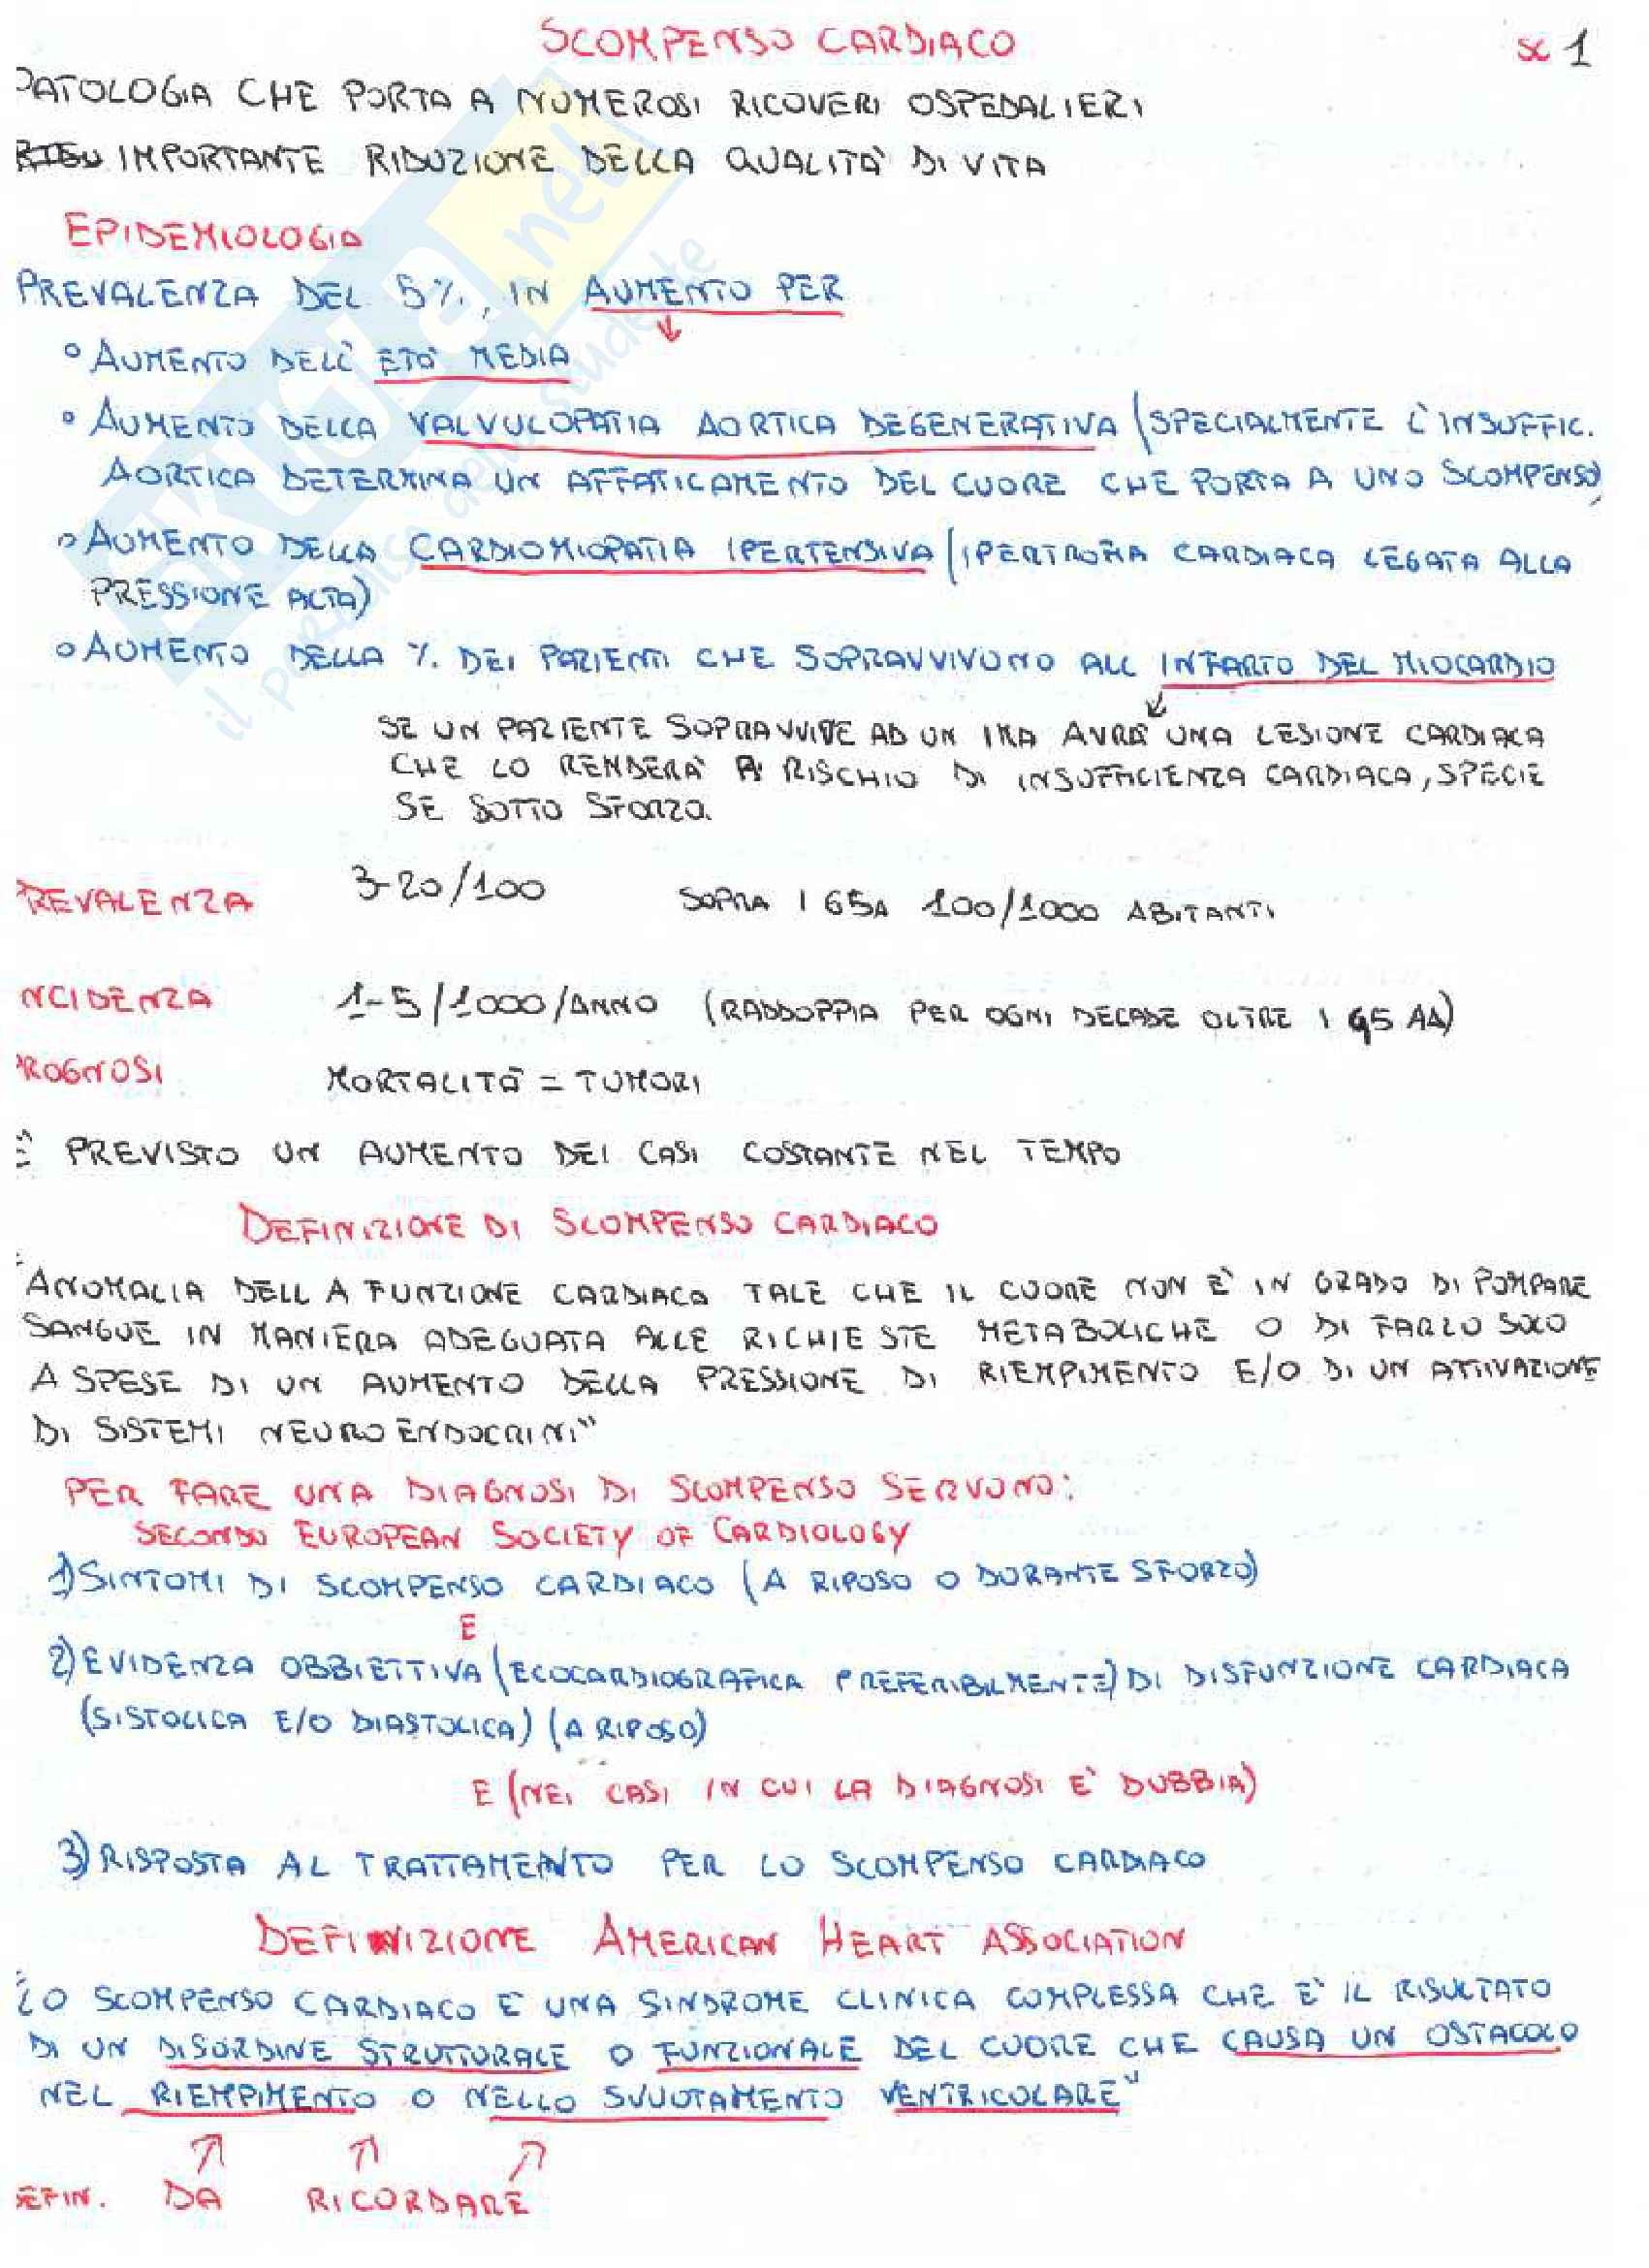 SCOMPENSO CARDIACO
SC 1
PATOLOGIA CHE PORTA A NUMEROSI RICOVERI OSPEDALIERI
IMPORTANTE RIDUZIONE DELLA QUALITA' DI VITA
EPIDEMIOLOGIA
PREVALENZA DEL 5%, IN AUMENTO PER
° AUMENTO DELL' ETA' MEDIA
° AUMENTO DELLA VALVULOPATIA AORTICA DEGENERATIVA (SPECIALMENTE L'INSUFFIC.
AORTICA DETERMINA UN AFFATICAMENTO DEL CUORE CHE PORTA A UNO SCOMPENSO)
° AUMENTO DELLA CARDIOMIOPATIA IPERTENSIVA (IPERTROFIA CARDIACA LEGATA ALLA
PRESSIONE ALTA)
° AUMENTO DELLA % DEI PAZIENTI CHE SOPRAVVIVONO ALL INFARTO DEL MIOCARDIO
SE UN PAZIENTE SOPRAVVIVE AD UN IMA AVRA' UNA LESIONE CARDIACA
CHE LO RENDERA' A RISCHIO DI INSUFFICIENZA CARDIACA, SPECIE
SE SOTTO SFORZO.
PREVALENZA 3-20/100 SOPRA I 65A 100/1000 ABITANTI
INCIDENZA 1-5/1000/ANNO (RADDOPPIA PER OGNI DECADE OLTRE I 45 AA)
PROGNOSI MORTALITA' = TUMORI
E' PREVISTO UN AUMENTO DEI CASI COSTANTE NEL TEMPO
DEFINIZIONE DI SCOMPENSO CARDIACO
"ANOMALIA DELL A FUNZIONE CARDIACA TALE CHE IL CUORE NON E' IN GRADO DI POMPARE
SANGUE IN MANIERA ADEGUATA ALLE RICHIESTE METABOLICHE O DI FARLO SOLO
A SPESE DI UN AUMENTO DELLA PRESSIONE DI RIEMPIMENTO E/O DI UN ATTIVAZIONE
DI SISTEMI NEUROENDOCRINI"
PER FARE UNA DIAGNOSI DI SCOMPENSO SERVONO:
SECONDO EUROPEAN SOCIETY OF CARDIOLOGY
1) SINTOMI DI SCOMPENSO CARDIACO (A RIPOSO O DURANTE SFORZO)
E
2) EVIDENZA OBBIETTIVA (ECOCARDIOGRAFICA PREFERIBILMENTE) DI DISFUNZIONE CARDIACA
(SISTOLICA E/O DIASTOLICA) (A RIPOSO)
E (NEI CASI IN CUI LA DIAGNOSI E' DUBBIA)
3) RISPOSTA AL TRATTAMENTO PER LO SCOMPENSO CARDIACO
DEFINIZIONE AMERICAN HEART ASSOCIATION
"LO SCOMPENSO CARDIACO E' UNA SINDROME CLINICA COMPLESSA CHE E' IL RISULTATO
DI UN DISORDINE STRUTTURALE O FUNZIONALE DEL CUORE CHE CAUSA UN OSTACOLO
NEL RIEMPIMENTO O NELLO SVUOTAMENTO VENTRICOLARE"
DEFIN. DA RICORDARE
SKUOLA.net
il paradiso dello studente